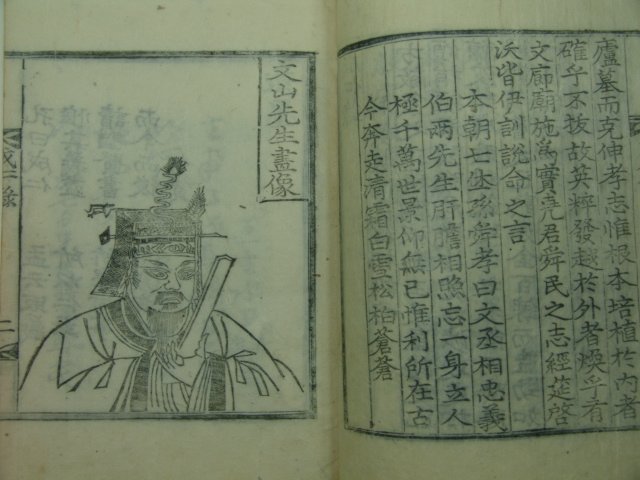 廬墓而克伸孝志惟根本培植於內者
確乎不拔故英粹發越於外者煥乎有
文廊廟施爲實堯君舜民之志經筵啓
沃皆伊訓說命之言
本朝士生孫舜孝曰文丞相忠義
伯兩先生肝膽相照忘一身立人
極千萬世景仰無已惟利所在古
今奔走淸霜白雪松柏蒼蒼
文山先生畵像
二